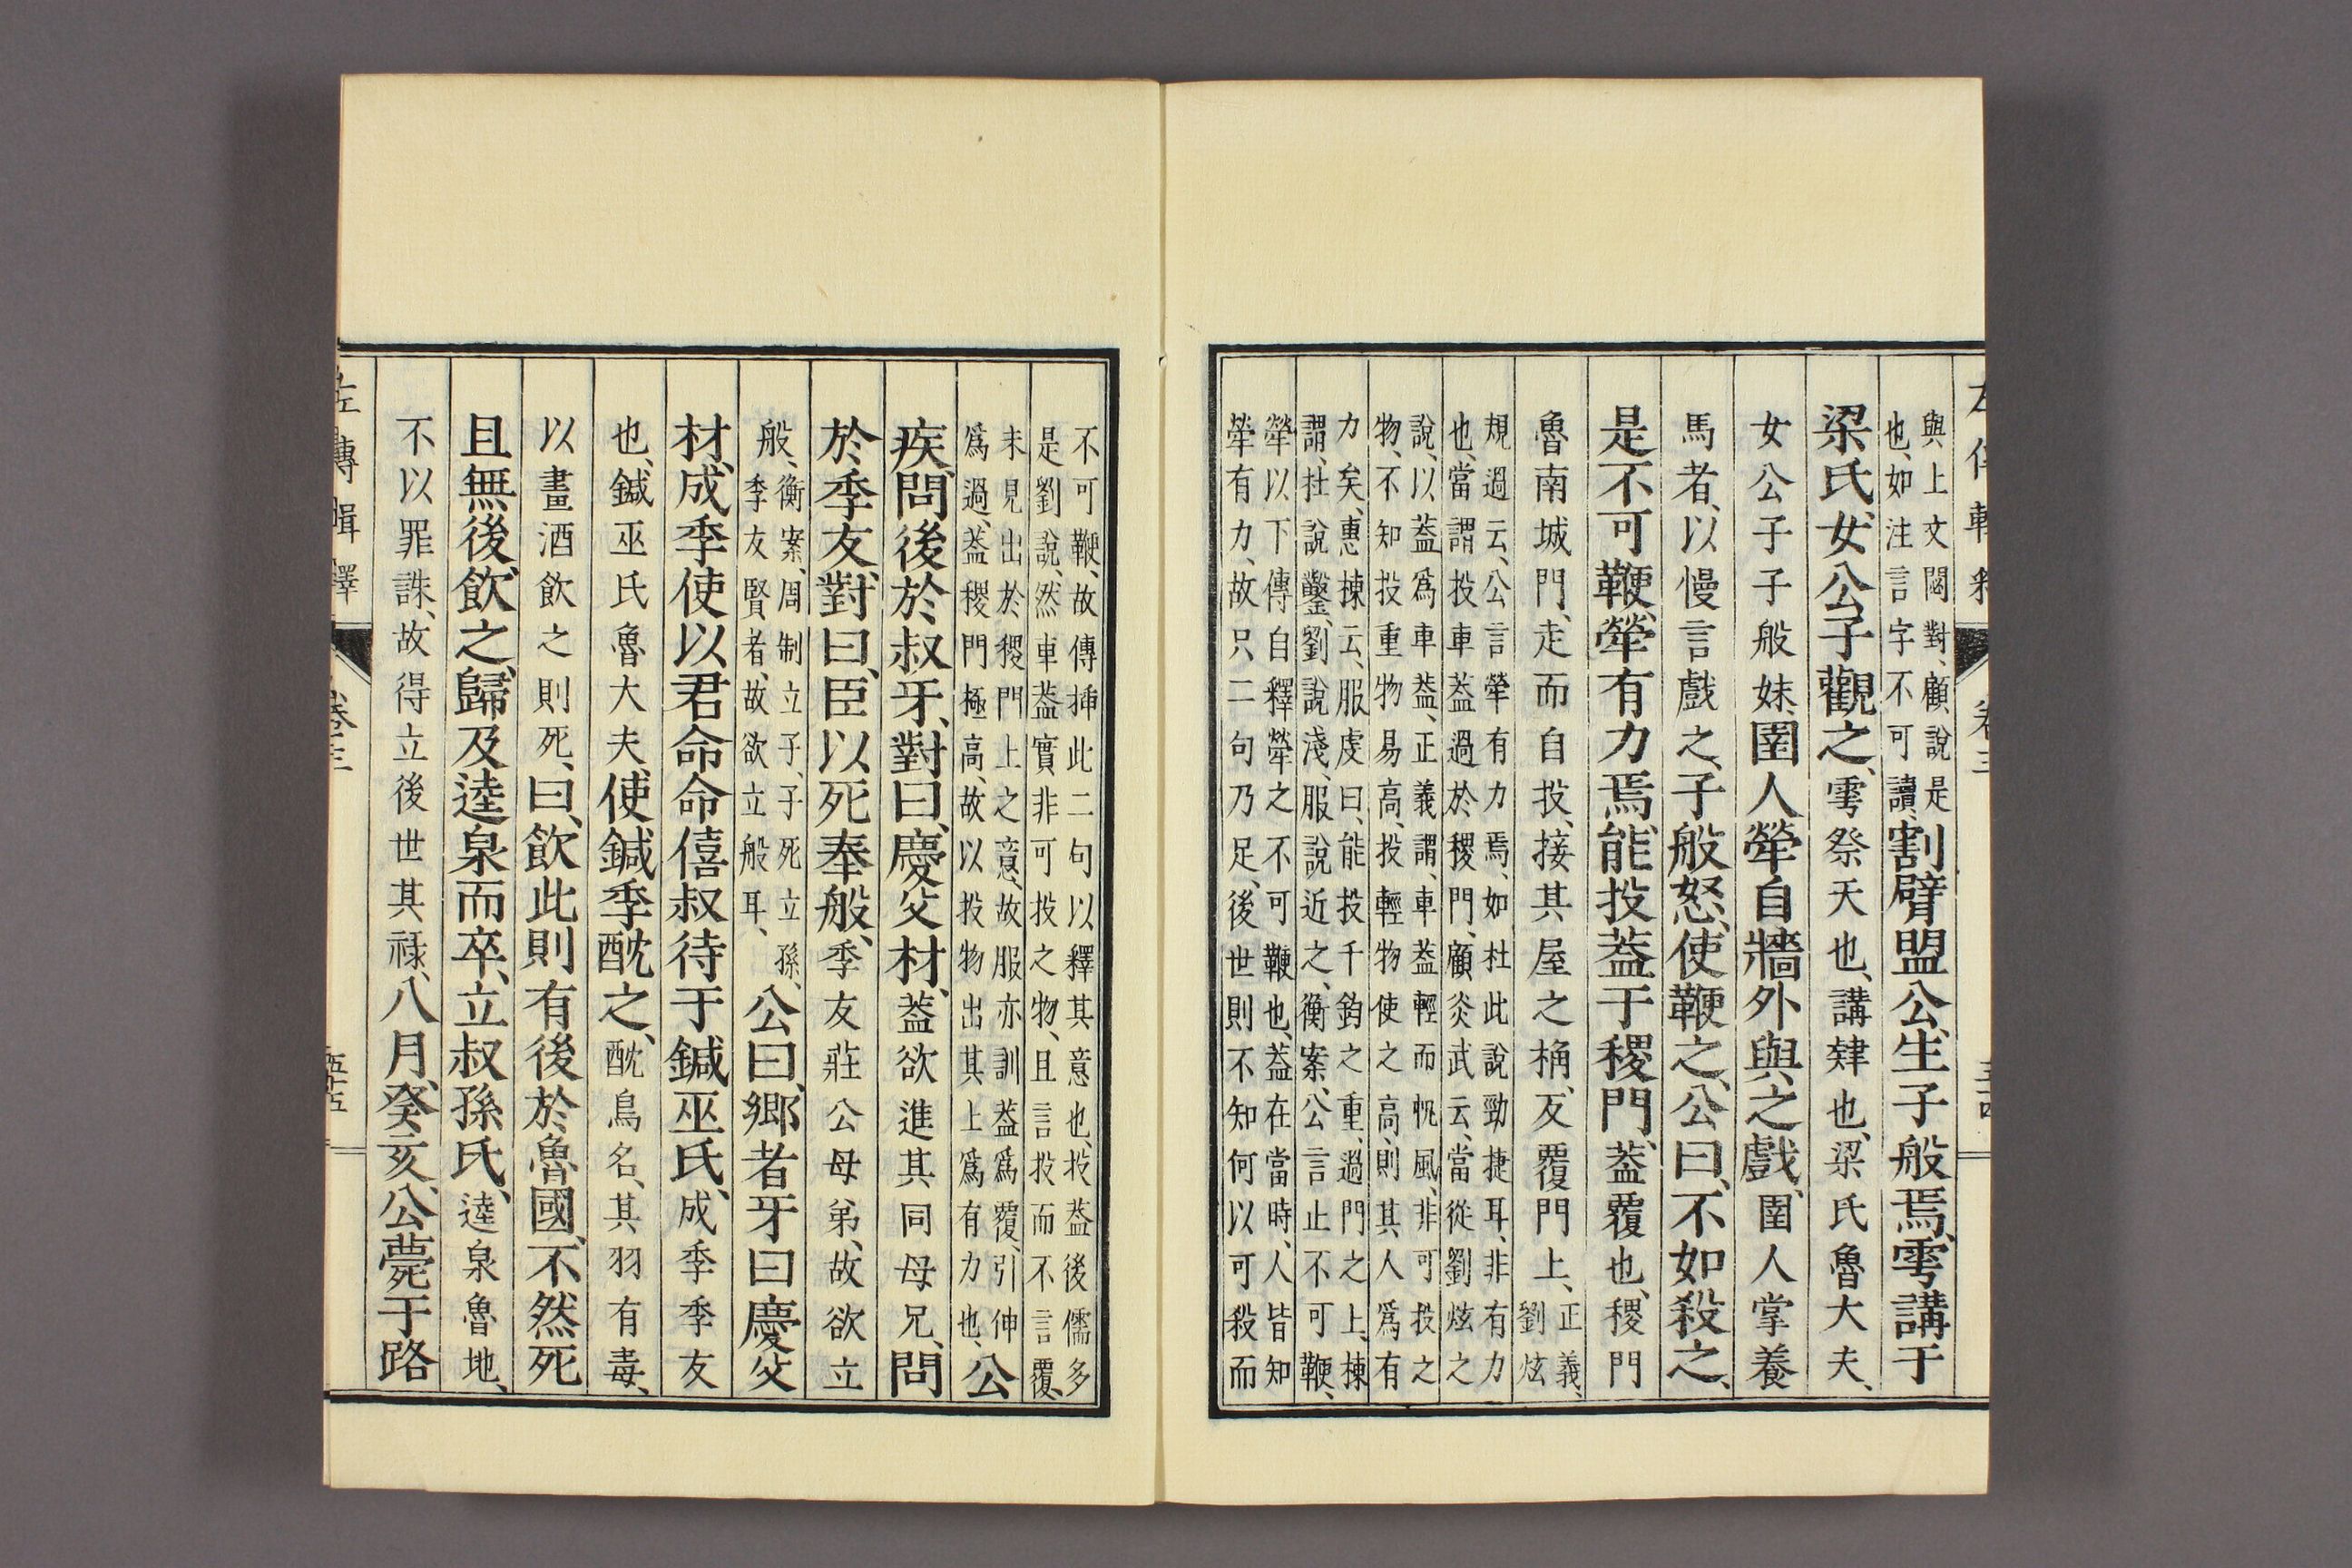 左傳輯釋 卷三
與上文閟對、顧說是
也、如注言字不可讀、割臂盟公、生子般焉、雩講于
梁氏、女公子觀之、雩祭天也、講肄也、梁氏魯大夫、
女公子子般妹、圉人犖自牆外與之戲、圉人掌養
馬者、以慢言戲之、子般怒、使鞭之、公曰、不如殺之、
是不可鞭、犖有力焉、能投葢于稷門、葢覆也、稷門
魯南城門、走而自投、接其屋之桷、反覆門上、正義、
劉炫
規過云、公言犖有力焉、如杜此說勁捷耳、非有力
也、當謂投車葢過於稷門、顧炎武云、當從劉炫之
說、以葢爲車葢、正義謂、車葢輕而帆風、非可投之
物、不知投重物易高、投輕物使之高、則其人爲有
力矣、惠棟云、服虔曰、能投千鈞之重、過門之上、棟
謂、杜說鑿、劉說淺、服說近之、衡案、公言止不可鞭、
犖以下傳自釋犖之不可鞭也、葢在當時、人皆知
犖有力、故只二句乃足、後世則不知何以可殺而
不可鞭、故傳挿此二句以釋其意也、投葢後儒多
是劉說、然車葢實非可投之物、且言投而不言覆、
未見出於稷門上之意、故服亦訓葢爲覆、引伸
爲過、葢稷門極高、故以投物出其上爲有力也、公
疾、問後於叔牙、對曰、慶父材、葢欲進其同母兄、問
於季友、對曰、臣以死奉般、季友莊公母弟、故欲立
般、衡案、周制立子、子死立孫、
季友賢者、故欲立般耳、公曰、鄉者牙曰慶父
材、成季使以君命命僖叔待于鍼巫氏、成季季友
也、鍼巫氏魯大夫、使鍼季酖之、酖鳥名、其羽有毒、
以畫酒飲之則死、曰、飲此則有後於魯國、不然死
且無後、飲之、歸及逵泉而卒、立叔孫氏、逵泉魯地、
不以罪誅、故得立後世其祿、八月、癸亥、公薨于路
左傳輯釋 卷三 五十五